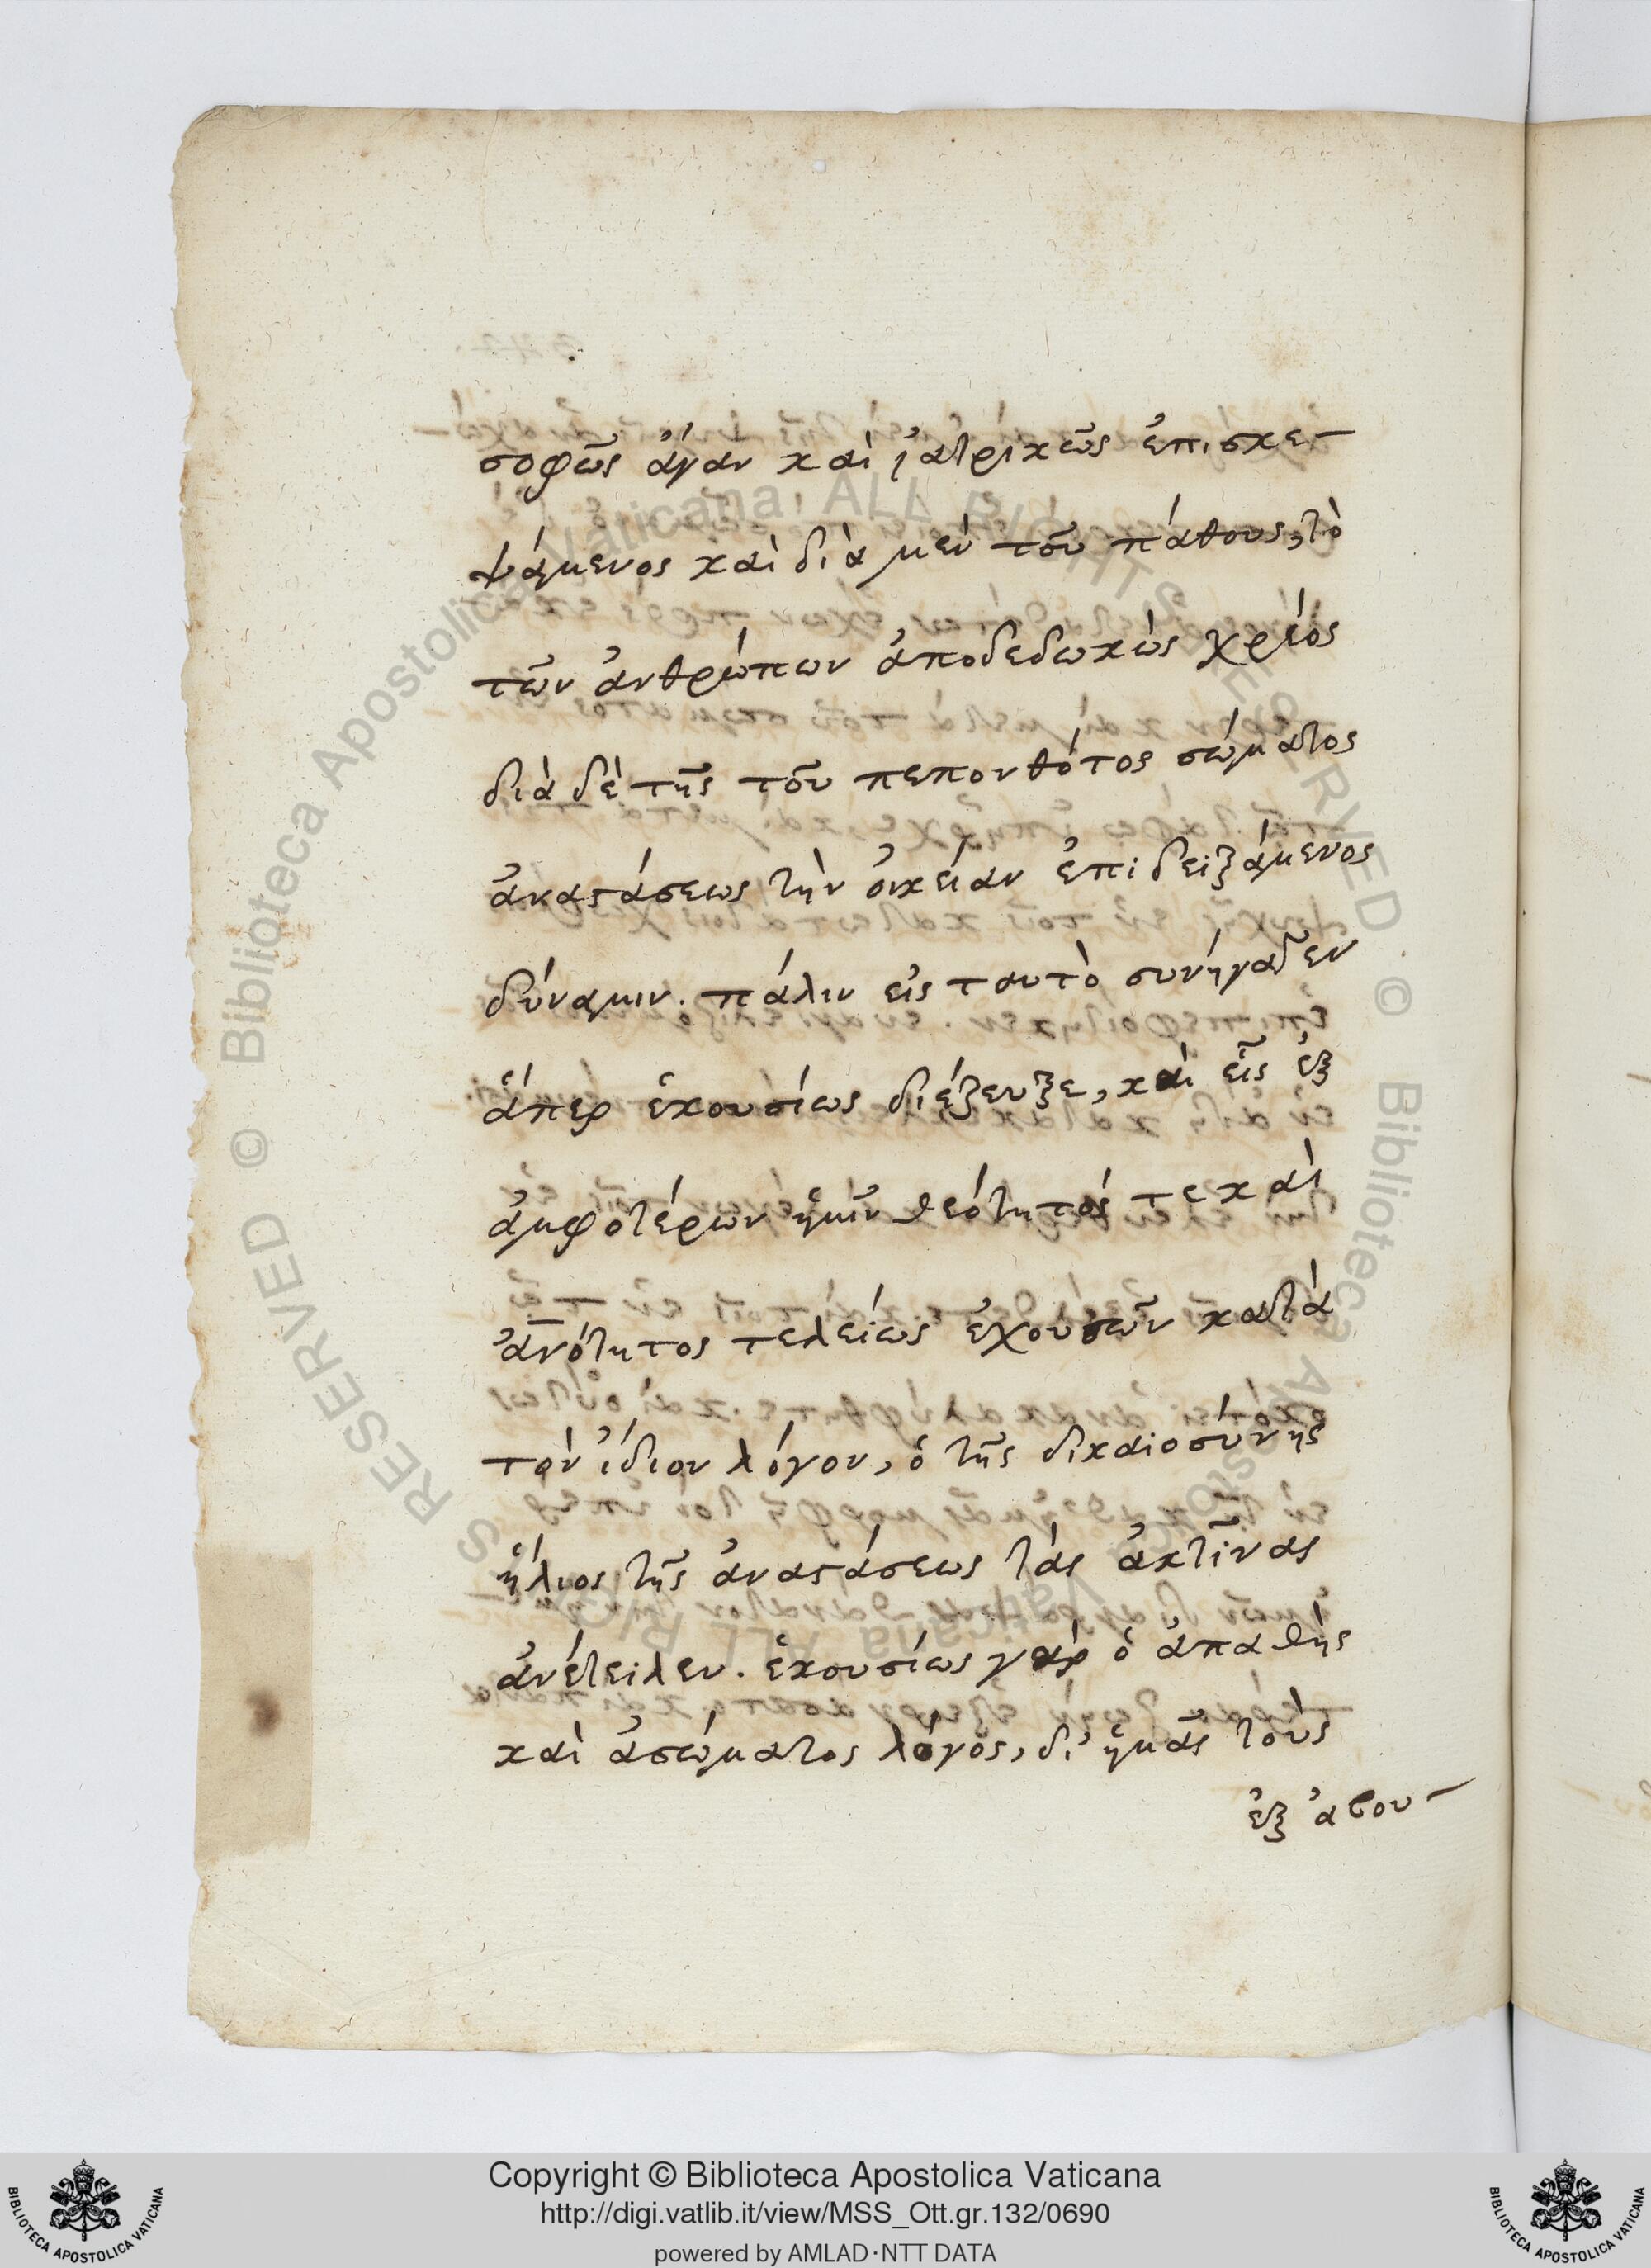 σοφῶς ἄγαν καὶ ἰατρικῶς ἐπισκε-
ψάμενος καὶ διὰ μὲν τοῦ πάθους, τὸ
τῶν ἀνθρώπων ἀποδεδωκὼς χρέος
διὰ δὲ τῆς τοῦ πεπονθότος σώματος
ἀναστάσεως τὴν οἰκείαν ἐπιδειξάμενος
δύναμιν. πάλιν εἰς ταυτὸ συνήγαγεν
ἅπερ ἑκουσίως διέζευξε, καὶ εἷς ἐξ
ἀμφοτέρων ἡμῖν θεότητός τε καὶ
ἀν̅ότητος τελείως ἐχουσῶν κατὰ
τὸν ἴδιον λόγον, ὁ τῆς δικαιοσύνης
ἥλιος τῆς ἀναστάσεως τὰς ἀκτῖνας
ἀνέτειλεν. ἑκουσίως γὰρ ὁ ἀπαθὴς
καὶ ἀσώματος λόγος, δι' ἡμᾶς τοὺς
ἐξ ἀβου-
Copyright © Biblioteca Apostolica Vaticana
http://digi.vatlib.it/view/MSS_Ott.gr.132/0690
powered by AMLAD·NTT DATA
BIBLIOTECA APOSTOLICA VATICANA
BIBLIOTECA APOSTOLICA VATICANA
© Biblioteca Apostolica Vaticana ALL RIGHTS RESERVED · © Biblioteca Apostolica Vaticana ALL RIGHTS RESERVED